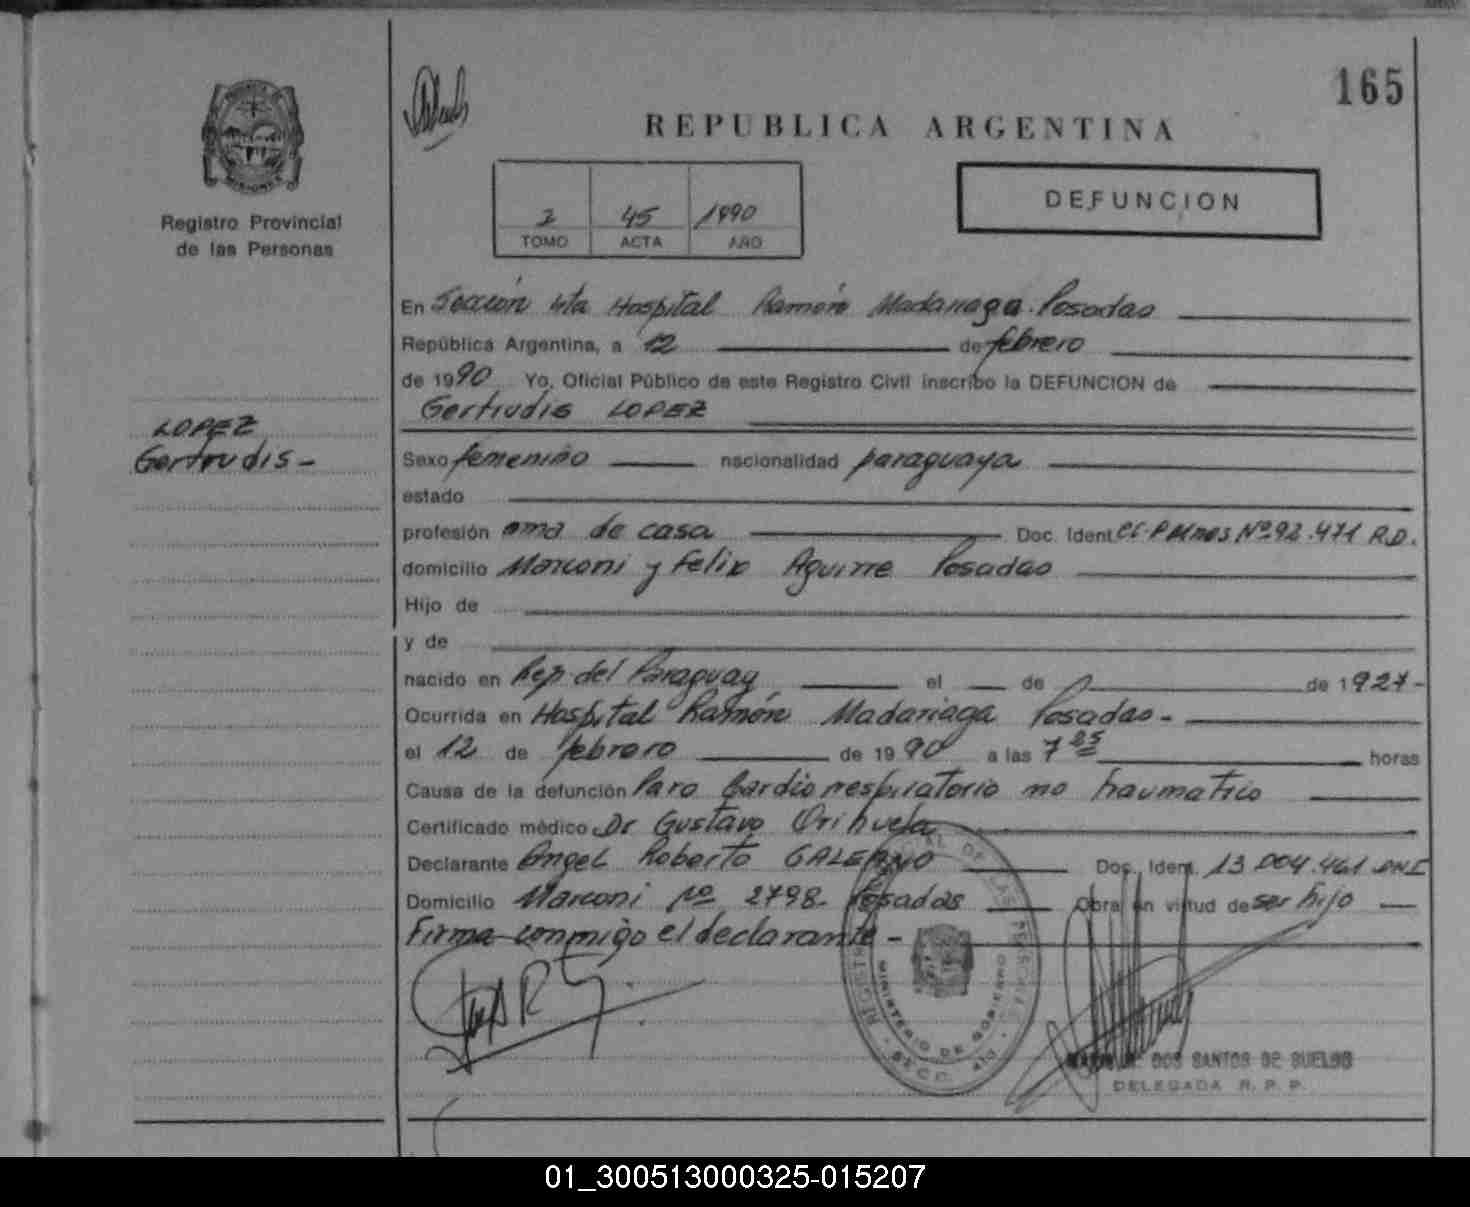 165
REPUBLICA ARGENTINA
MISIONES
Registro Provincial
de las Personas
DEFUNCION
2 45 1990
TOMO ACTA AÑO
En Sección 4ta Hospital Ramón Madariaga. Posadas
República Argentina, a 12 de febrero
de 1990 Yo, Oficial Público de este Registro Civil inscribo la DEFUNCION de
Gertrudis LOPEZ
LOPEZ
Gertrudis-
Sexo femenino nacionalidad paraguaya
estado
profesión ama de casa Doc. Ident. Nº 92.471 R.D.
domicilio Marconi y Felix Aguirre Posadas
Hijo de
y de
nacido en Rep. del Paraguay el de de 1927-
Ocurrida en Hospital Ramón Madariaga Posadas-
el 12 de febrero de 1990 a las 7 25 horas
Causa de la defunción Paro Cardiorrespiratorio no traumatico
Certificado médico Dr Gustavo Orihuela
Declarante Angel Roberto GALEANO Doc. Ident. 13.004.461 DNI
Domicilio Marconi Nº 2798. Posadas Obra en virtud de ser hijo
Firma conmigo el declarante-
MINISTERIO DE GOBIERNO
DOS SANTOS DE BUELBO
DELEGADA R. P. P.
01_300513000325-015207